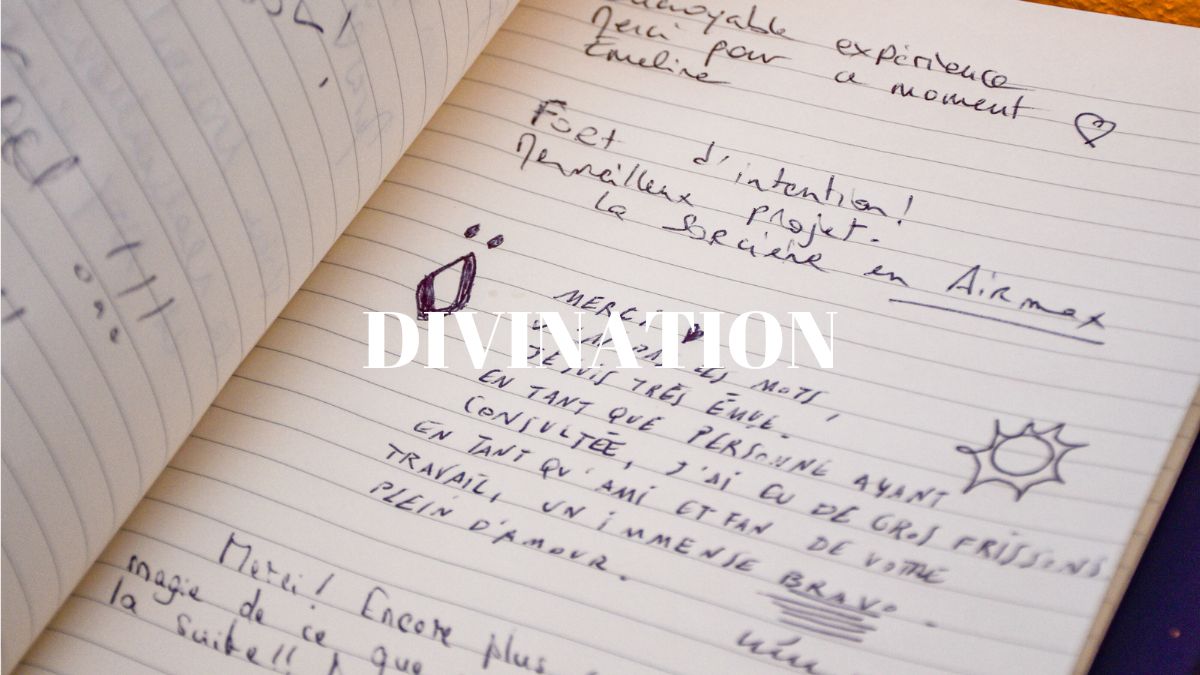 incroyable expérience
Merci pour ce moment
Emeline
Fort d'intention!
Merveilleux projet.
la Sorcière en Airmax
MERCI
PAS LES MOTS,
JE SUIS TRÈS ÉMUE.
EN TANT QUE PERSONNE AYANT
CONSULTÉE, J'AI EU DE GROS FRISSONS.
EN TANT QU'AMI ET FAN DE VOTRE
TRAVAIL, UN IMMENSE BRAVO.
PLEIN D'AMOUR.
DIVINATION
Merci! Encore plus
magie de ce que
la suite!!